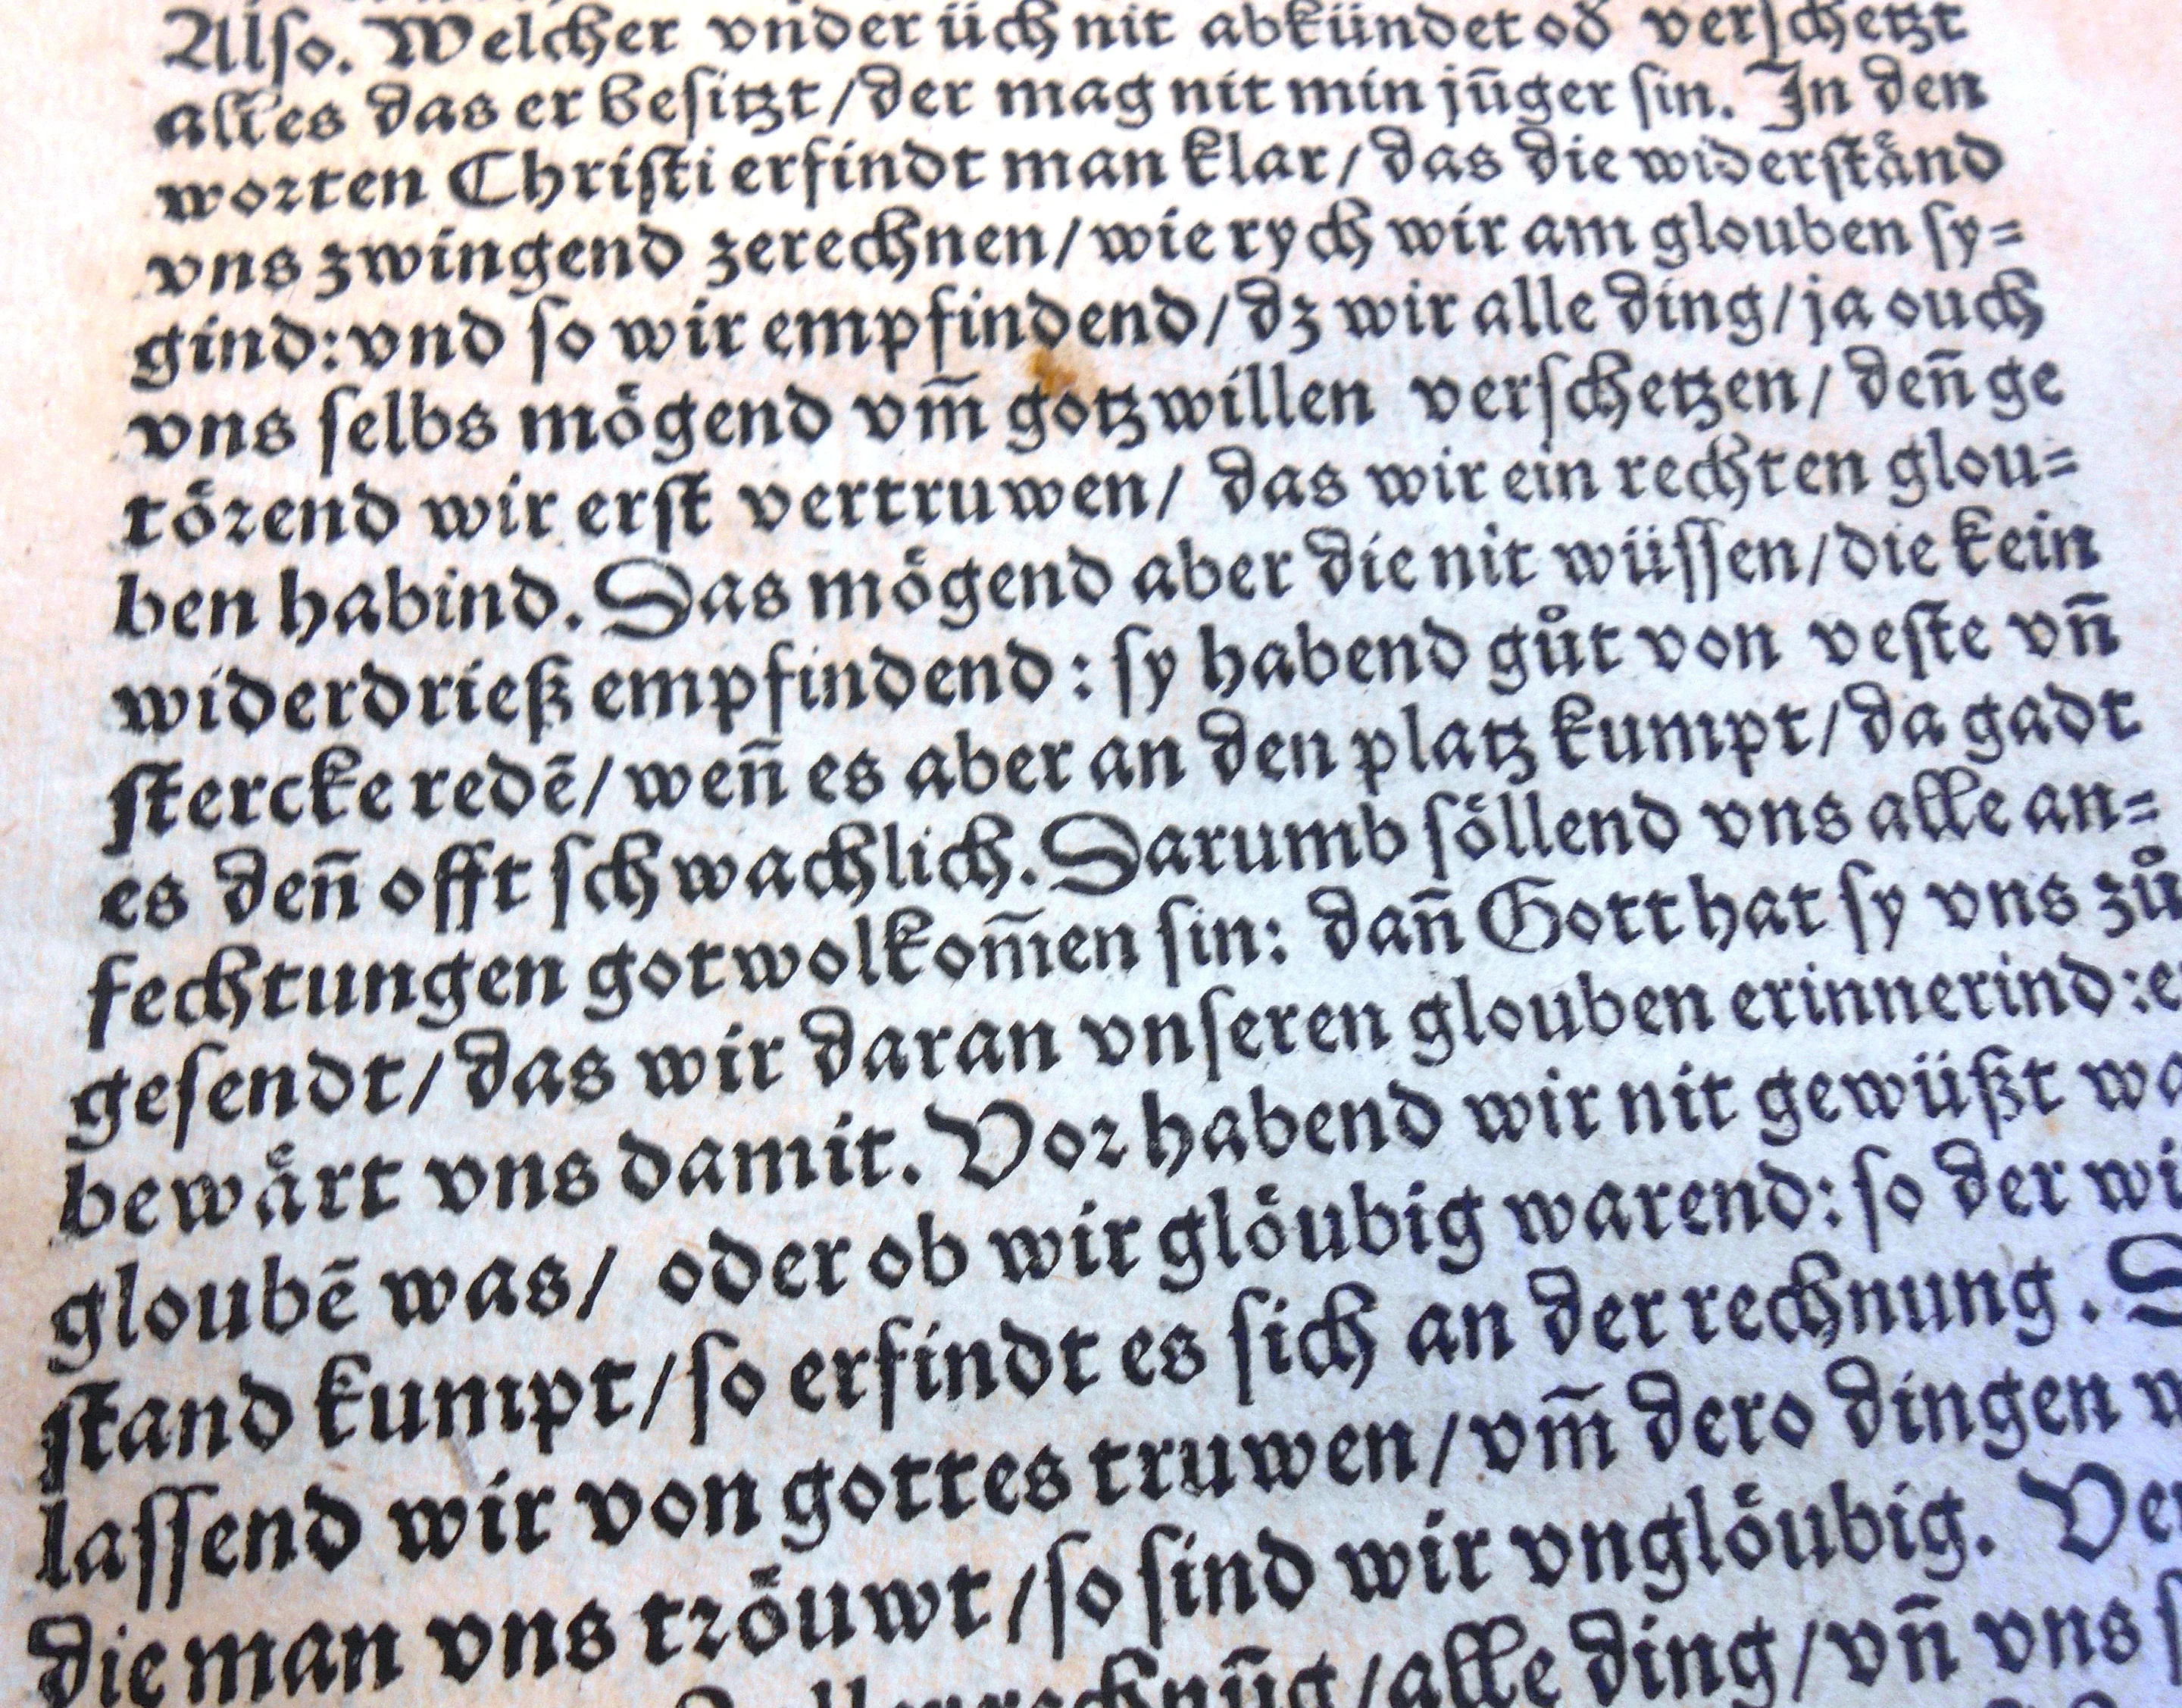 Also. Welcher vnder üch nit abkündet od̄ verschetzt
alles das er besitzt/der mag nit min jūger sin. In den
worten Christi erfindt man klar/das die widerstånd
vns zwingend zerechnen/wie rych wir am glouben sy=
gind:vnd so wir empfindend/dz wir alle ding/ja ouch
vns selbs mögend vm̄ gotzwillen verschetzen/ deñ ge
törend wir erst vertruwen/ das wir ein rechten glou=
ben habind. Das mögend aber die nit wüssen/die kein
widerdrieß empfindend: sy habend gůt von veste vñ
stercke redē/weñ es aber an den platz kumpt/da gadt
es deñ offt schwachlich. Darumb söllend vns alle an=
fechtungen gotwolkom̄en sin: dañ Gott hat sy vns zů
gesendt/das wir daran vnseren glouben erinnerind:
bewårt vns damit. Vor habend wir nit gewüßt
gloubē was/ oder ob wir glöubig warend: so der
stand kumpt/so erfindt es sich an der rechnung.
lassend wir von gottes truwen/vm̄ dero dingen
die man vns tröuwt/so sind wir vnglöubig.
alle ding/vñ vns